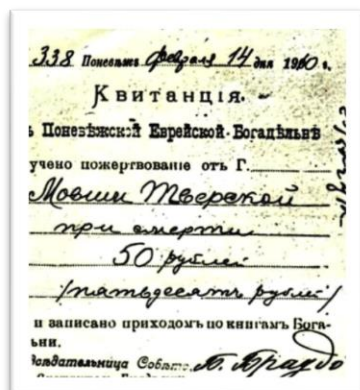 338 Поневѣжъ Февраля 14 дня 1910 г.
Квитанція.
Поневѣжской Еврейской Богадѣльнѣ
учено пожертвованіе отъ Г.
Мовши Тверской
при смерти
50 рублей
/пятьдесятъ рублей/
и записано приходомъ по книгамъ Бога-
ьни.
Предсѣдательница Совѣта